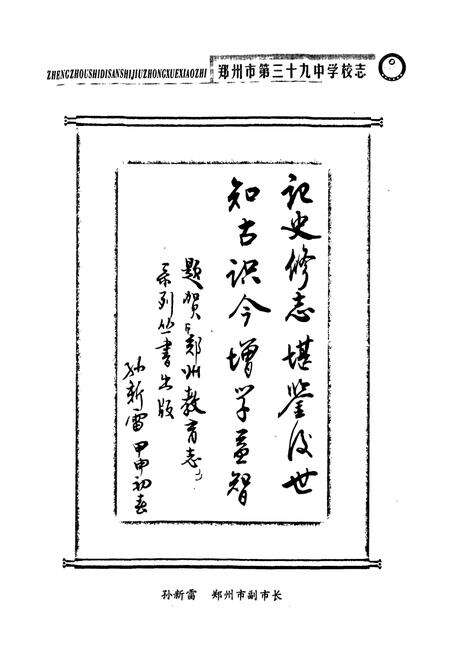 ZHENGZHOUSHIDISANSHIJIUZHONGXUEXIAOZHI
郑州市第三十九中学校志
记史修志堪鉴后世
知古识今增学益智
题贺《郑州教育志》
系列丛书出版
孙新雷 甲申初春
孙新雷 郑州市副市长